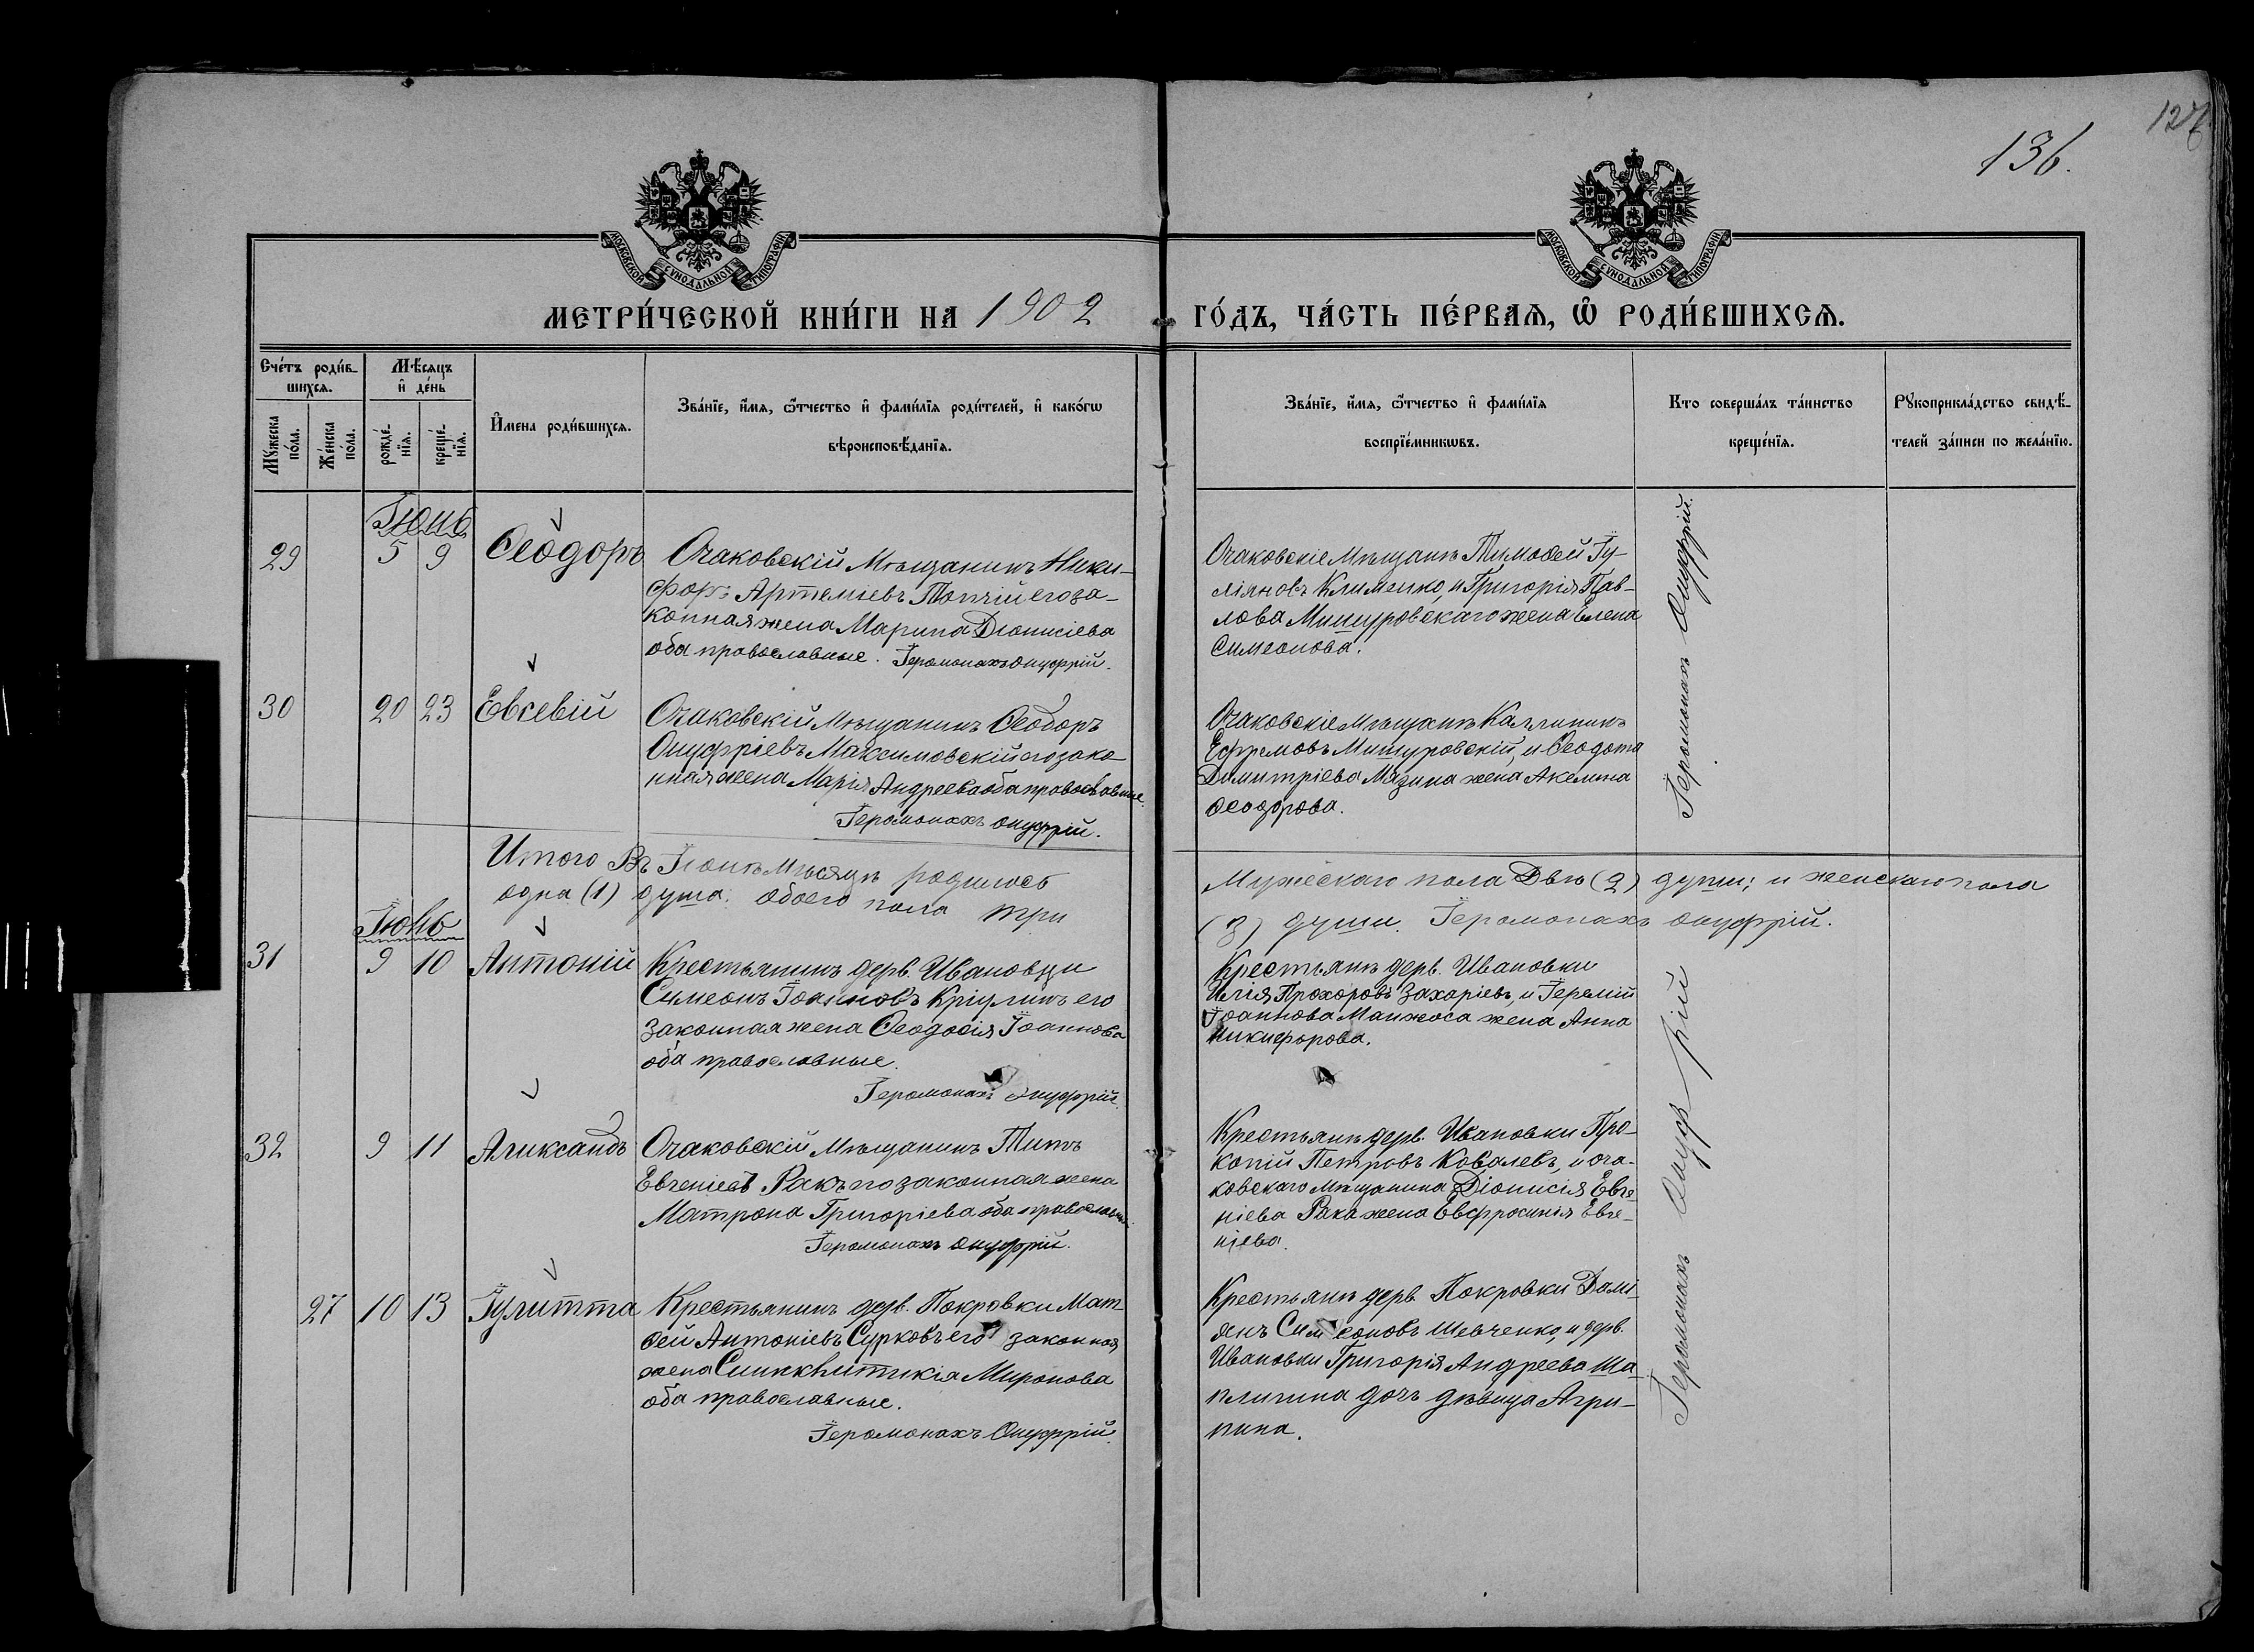 127
136.
МОСКОВСКОЙ СѴНОДАЛЬНОЙ ТИПОГРАФІИ
МОСКОВСКОЙ СѴНОДАЛЬНОЙ ТИПОГРАФІИ
МЕТРИ́ЧЕСКОЙ КНИ́ГИ НА 1902
ГО́ДЪ, ЧА́СТЬ ПЕ́РВАѦ, Ѡ҆ РОДИ́ВШИХСѦ.
Счéтъ роди́в-
шихсѧ.
Мꙋжеска по́ла.
Же́нска по́ла.
Мѣ́сѧцъ
и҆ де́нь
рожде́-
нїѧ.
креще́-
нїѧ.
И҆мена роди́вшихсѧ.
Зва́нїе, и҆́мѧ, ѻ҆́тчество и҆ фами́лїѧ роди́телей, и҆ како́гѡ
вѣроисповѣ́данїѧ.
Зва́нїе, и҆́мѧ, ѻ҆́тчество и҆ фами́лїѧ
воспрїе́мникѡвъ.
Кто соверша́лъ та́инство
креще́нїѧ.
Рꙋкоприкла́дство свидѣ́-
телей за́писи по жела́нїю.
Іюнь
29 5 9 Ѳеодоръ
Очаковскій Мѣщанинъ Ники-
форъ Артеміевъ Топчій его за-
конная жена Марина Діонисіева
оба православные. Іеромонахъ Онуфрій.
Очаковскіе Мѣщане Тимоѳей Іу-
ліановъ Клименко, и Григорія Пав-
лова Мишуровскаго жена Елена
Симеонова.
Іеромонахъ Онуфрій.
30 20 23 Евсевій
Очаковскій Мѣщанинъ Ѳеодоръ
Онуфріевъ Максимовскій его зако-
нная жена Марія Андреева оба православные.
Іеромонахъ Онуфрій.
Очаковскіе мѣщане Каллиникъ
Ефремовъ Мишуровскій, и Ѳеодота
Димитріева Мазина жена Акелина
Ѳеодорова.
Итого Въ Іюнѣ Мѣсяцѣ родилось
Мужескаго пола Двѣ (2) души; и женскаго пола
одна (1) душа. обоего пола три
(3) души. Іеромонахъ Онуфрій.
Іюль
31 9 10 Антоній
Крестьянинъ дерв. Ивановки
Симеонъ Іоанновъ его
законная жена Ѳеодосія Іоаннова
оба православные.
Іеромонахъ Онуфрій.
Крестьяне дерв. Ивановки
Илія Прохоровъ Захаріевъ, и Іереміи
Іоаннова Манжоса жена Анна
Никифорова.
32 9 11 Александъ
Очаковскій Мѣщанинъ Титъ
Евгеніевъ Ракъ его законная жена
Матрона Григоріева оба православные.
Іеромонахъ Онуфрій.
Крестьяне дерв. Ивановки Про-
копій Петровъ Ковалевъ, и оча-
ковскаго Мѣщанина Діонисія Евге-
ніева Рака жена Евфросинія Евге-
ніева.
Іеромонахъ Онуфрій
27 10 13 Іулитта
Крестьянинъ дерв. Покровки Мат-
ѳей Антоніевъ Сурковъ его законная
жена Синкклитикія Миронова
оба православные.
Іеромонахъ Онуфрій.
Крестьяне дерв. Покровки Дамі-
янъ Симеоновъ Шевченко, и дерв.
Ивановки Григорія Андреева Ша-
плигина дочь дѣвица Агри-
пина.